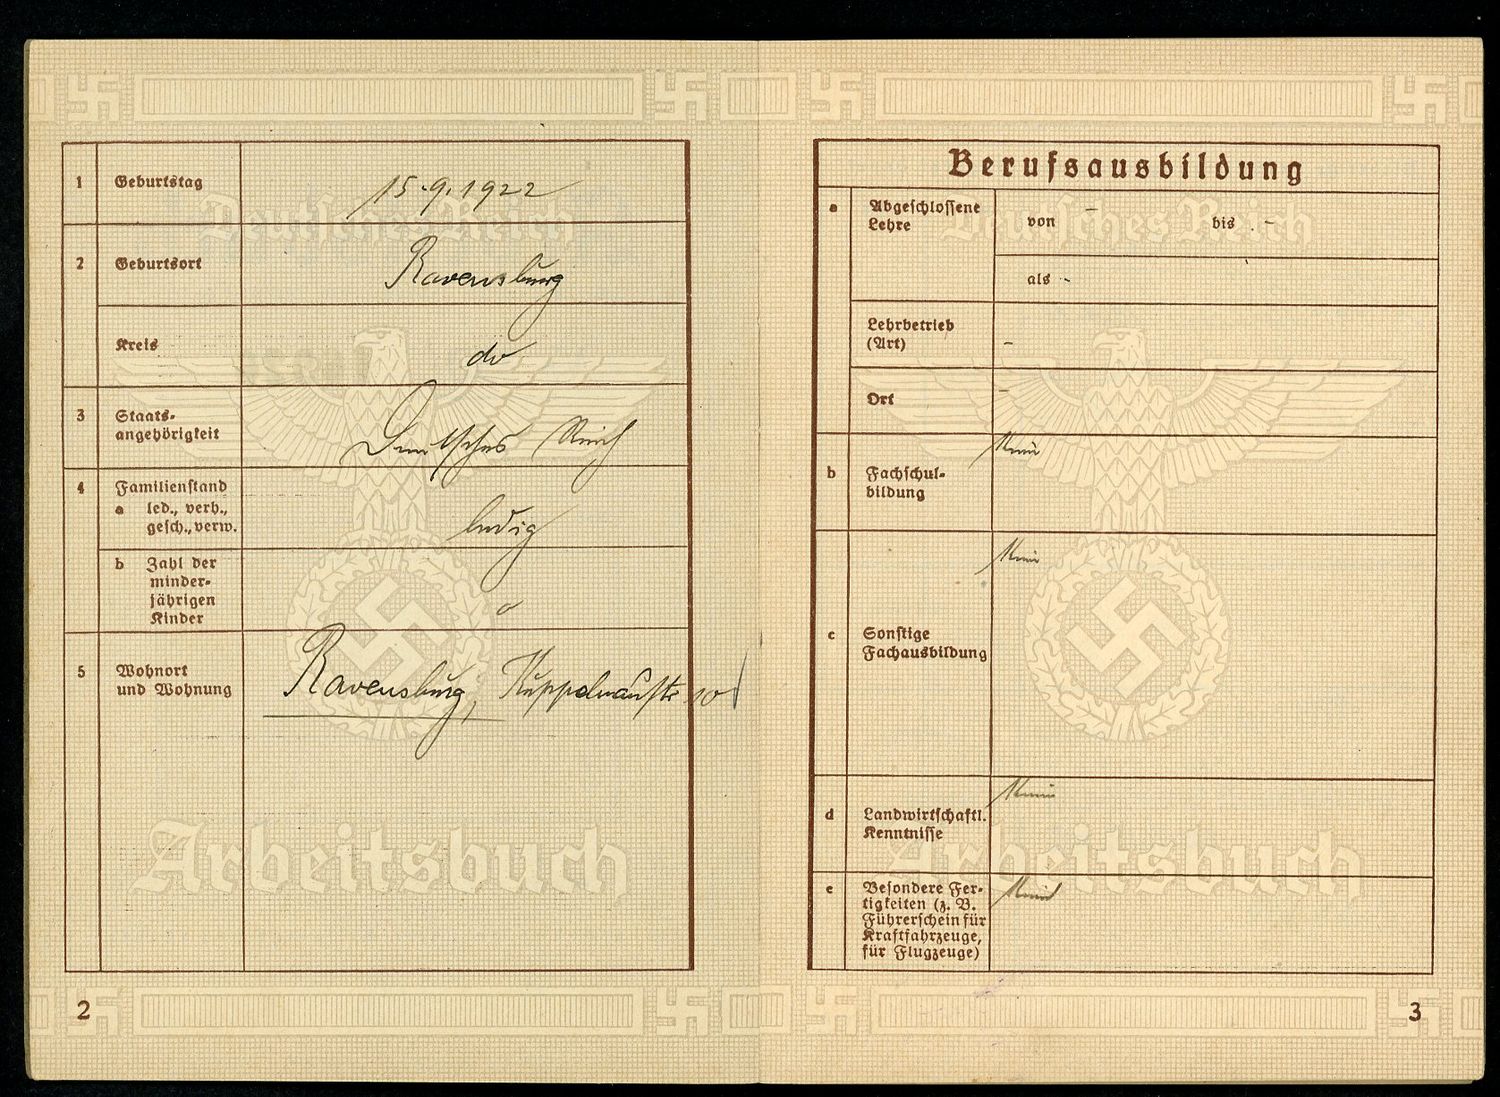 1 Geburtstag 15.9.1922
2 Geburtsort Ravensburg
Kreis do
3 Staats-
angehörigkeit Deutsches Reich
4 Familienstand
a led., verh.,
gesch., verw. ledig
b Zahl der
minder-
jährigen
Kinder o
5 Wohnort
und Wohnung Ravensburg,
2
Deutsches Reich
Arbeitsbuch
Berufsausbildung
a Abgeschlossene
Lehre von - bis -
als -
Lehrbetrieb
(Art) -
Ort -
b Fachschul-
bildung
c Sonstige
Fachausbildung
d Landwirtschaftl.
Kenntnisse
e Besondere Fer-
tigkeiten (z. B.
Führerschein für
Kraftfahrzeuge,
für Flugzeuge)
3
Deutsches Reich
Arbeitsbuch